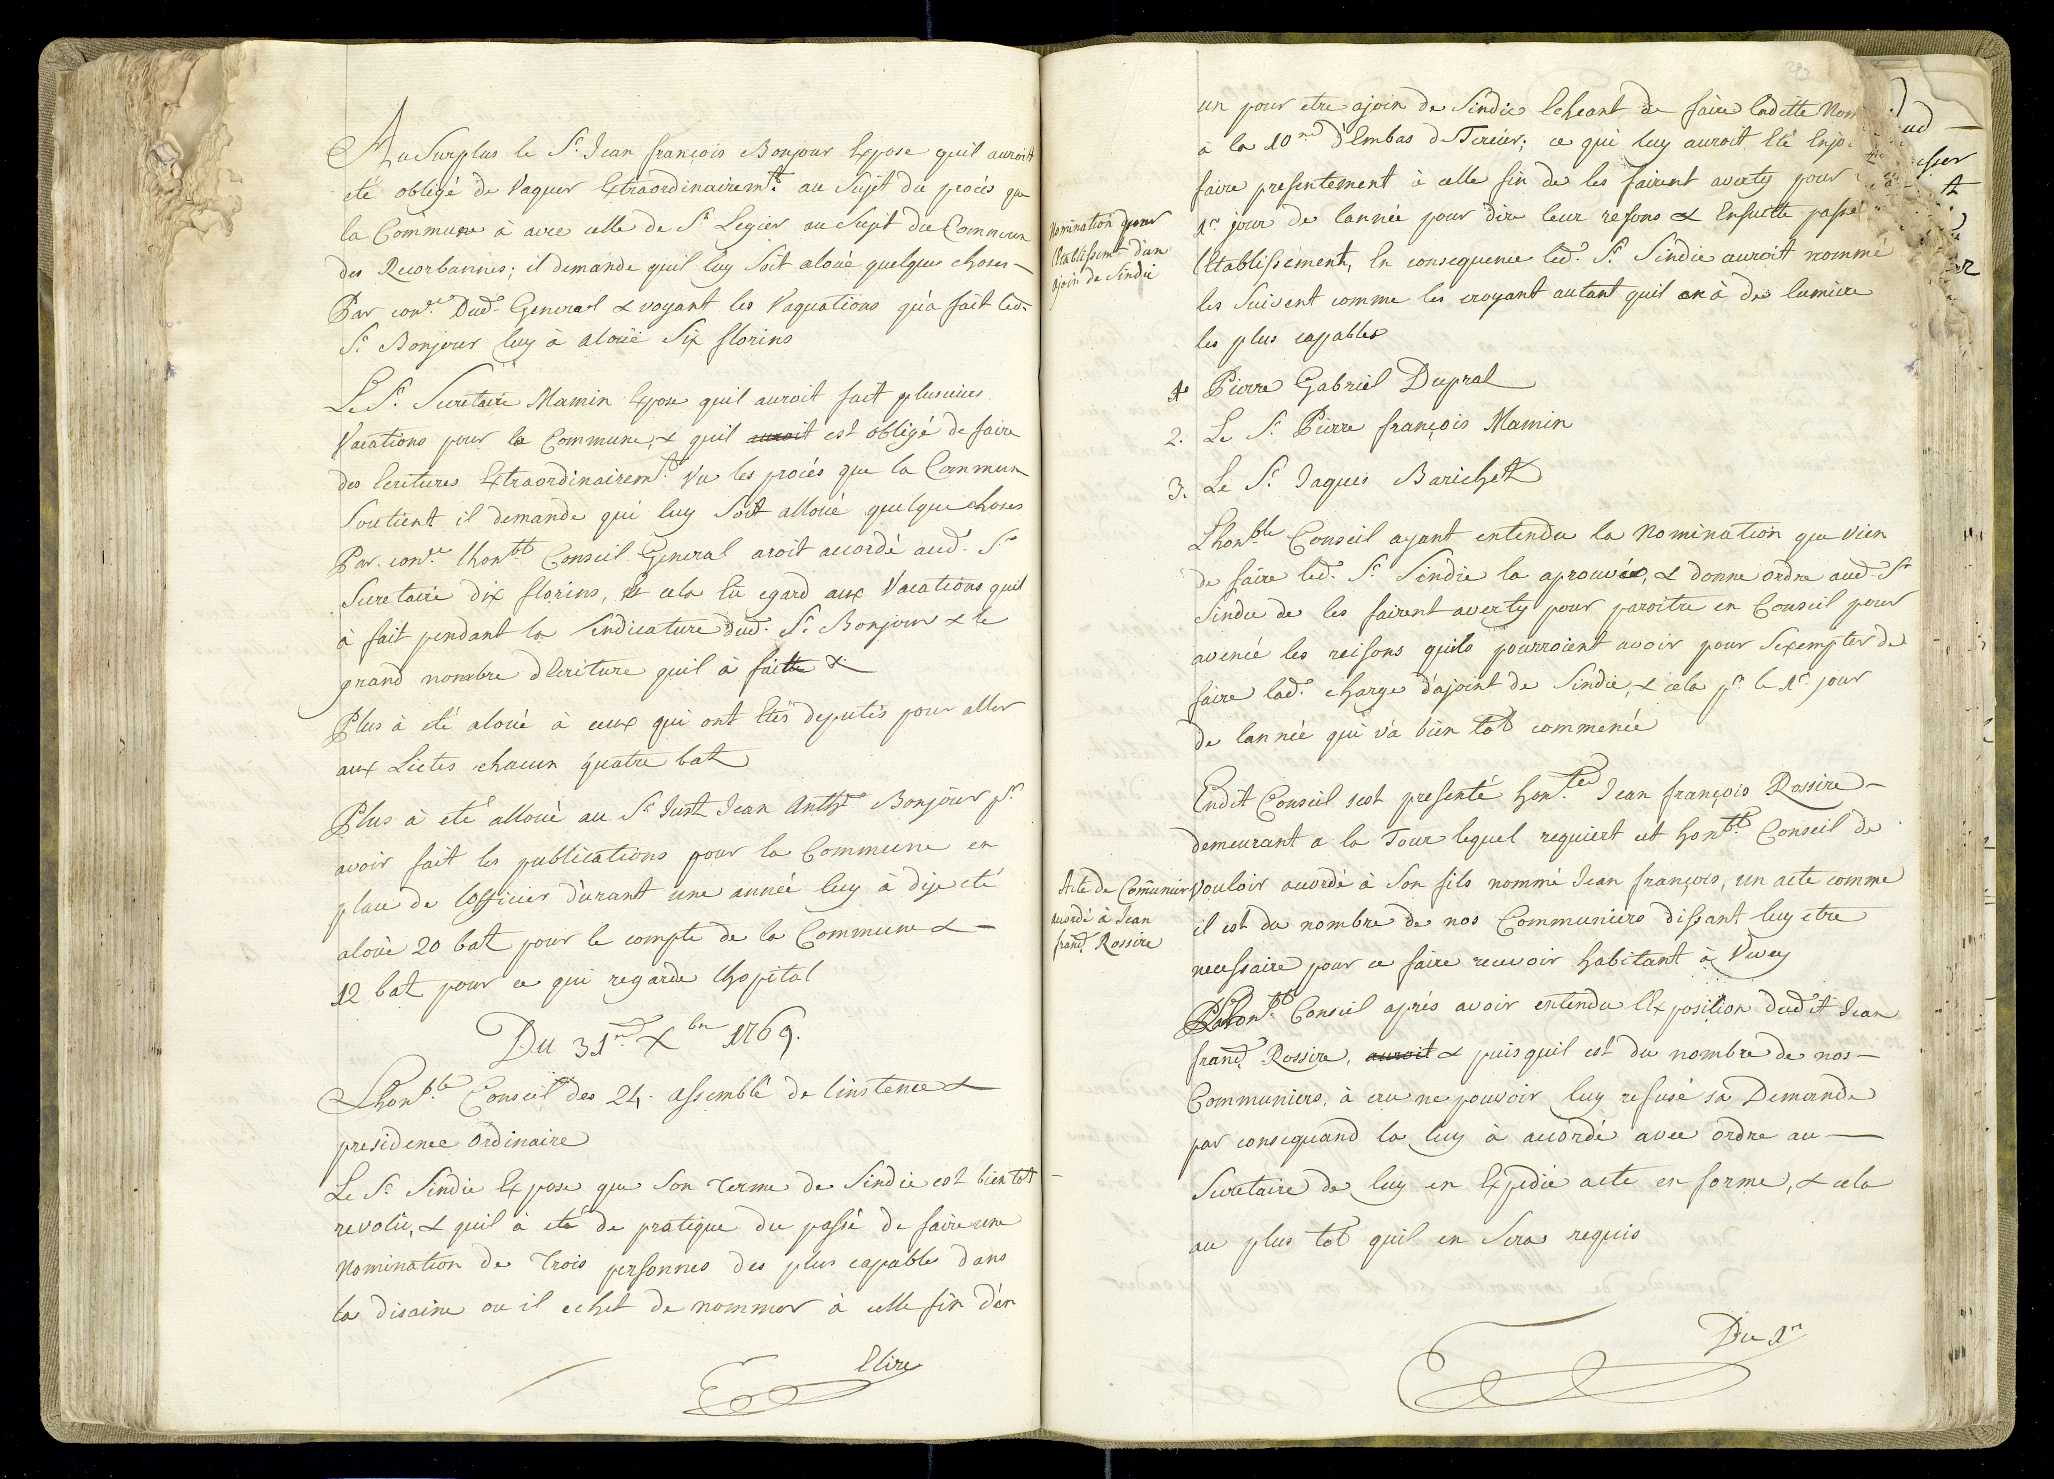 Au Surplus le Sr. Jean françois Bonjour Expose quil auroit
eté obligé de Vaquer Extraordinairemt. au Sujet du procés que
la Commune à avec celle de St Legier au Sujet du Commun
des Recorbannes; il demande quil luy Soit aloué quelques choses –
Par conr.ce Dud. General & voyant les Vaquations qu'a fait led.
Sr. Bonjour luy à aloüé Six florins
Le Sr. Secretaire Mamin Expose quil auroit fait plusieurs
Vacations pour la Commune, & quil auroit est obligé de faire
des Ecritures Extraordinairemt. vu les procés que la Commun
Soutient il demande qui luy Soit alloué quelque choses
Par conr.ce lhonble Conseil General aroit accordé aud. Sr
Secretaire dix florins, & cela Eu egard aux Vacations quil
à fait pendant la Sindicature dud. Sr. Bonjour & le
grand nombre dEcriture quil à faitte &
Plus à eté aloué à ceux qui ont Etés deputés pour aller
aux Lietes chacun quatre batz
Plus à eté alloué au Sr Just Jean Anthe Bonjour pr.
avoir fait les publications pour la Commune en
place de lofficier durant une année luy à dije eté
aloüé 20 batz pour le compte de la Commune & –
12 batz pour ce qui regarde lhopital
Du 31me Xbre 1769.
Lhonble. Conseil des 24. assemblé de linstence &
presidence ordinaire
Le Sr Sindic Expose que Son Terme de Sindic est bientot –
revolu, & quil à eté de pratique du passé de faire une
Nomination de Trois personnes des plus capables dans
la disaine ou il echet de nommer à celle fin d'en
Elire
un pour etre ajoin de Sindic Echeant de faire ladette Nom
à la 10me d'Embas d Tercier; ce qui luy auroit Eté Enjo
faire presentement à celle fin de les fairent averty pour
1er jour de lannée pour dire leur resons & Ensuitte passé
Etablissement, En consequence led. Sr. Sindic auroit nommé
les Suivent comme les croyant autant quil en à de lumiere
les plus capables
Nomination pour
l'Etablissemt d'un
ajoin de Sindic
1. Pierre Gabriel Dupral
2. Le Sr. Pierre françois Mamin
3. Le Sr. Jaques Barichet
Lhonble Conseil ayant entendu la Nomination que vien
de faire led. Sr. Sindic la aprouvée, & donne ordre aud. Sr
Sindic de les fairent averty pour paroitre en Conseil pour
avencé les reisons quils pourroient avoir pour Sexempter de
faire lad. charge d'ajoint de Sindic, & cela pr. le 1er. jour
de lannée qui va bien tot commencée
Endit Conseil sest presenté honte. Jean françois Rossire –
demeurant a la Tour lequel requiert cet honble. Conseil de
vouloir accordé à Son fils nommé Jean françois, un acte comme
il est du nombre de nos Communiers dissant luy etre
necessaire pour ce faire recevoir habitant à Vevey
Acte de Comunier
accordé à Jean
franç. Rossire
Lhonble. Conseil aprés avoir entendu lExposition dudit Jean
franç. Rossire, auroit & puisquil est du nombre de nos –
Communiers, à cru ne pouvoir luy refusé sa Demande
par consequand la luy à accordé avec ordre au –
Secretaire de luy en Expedié acte en forme, & cela
au plus tot quil en Sera requis
Du 1er